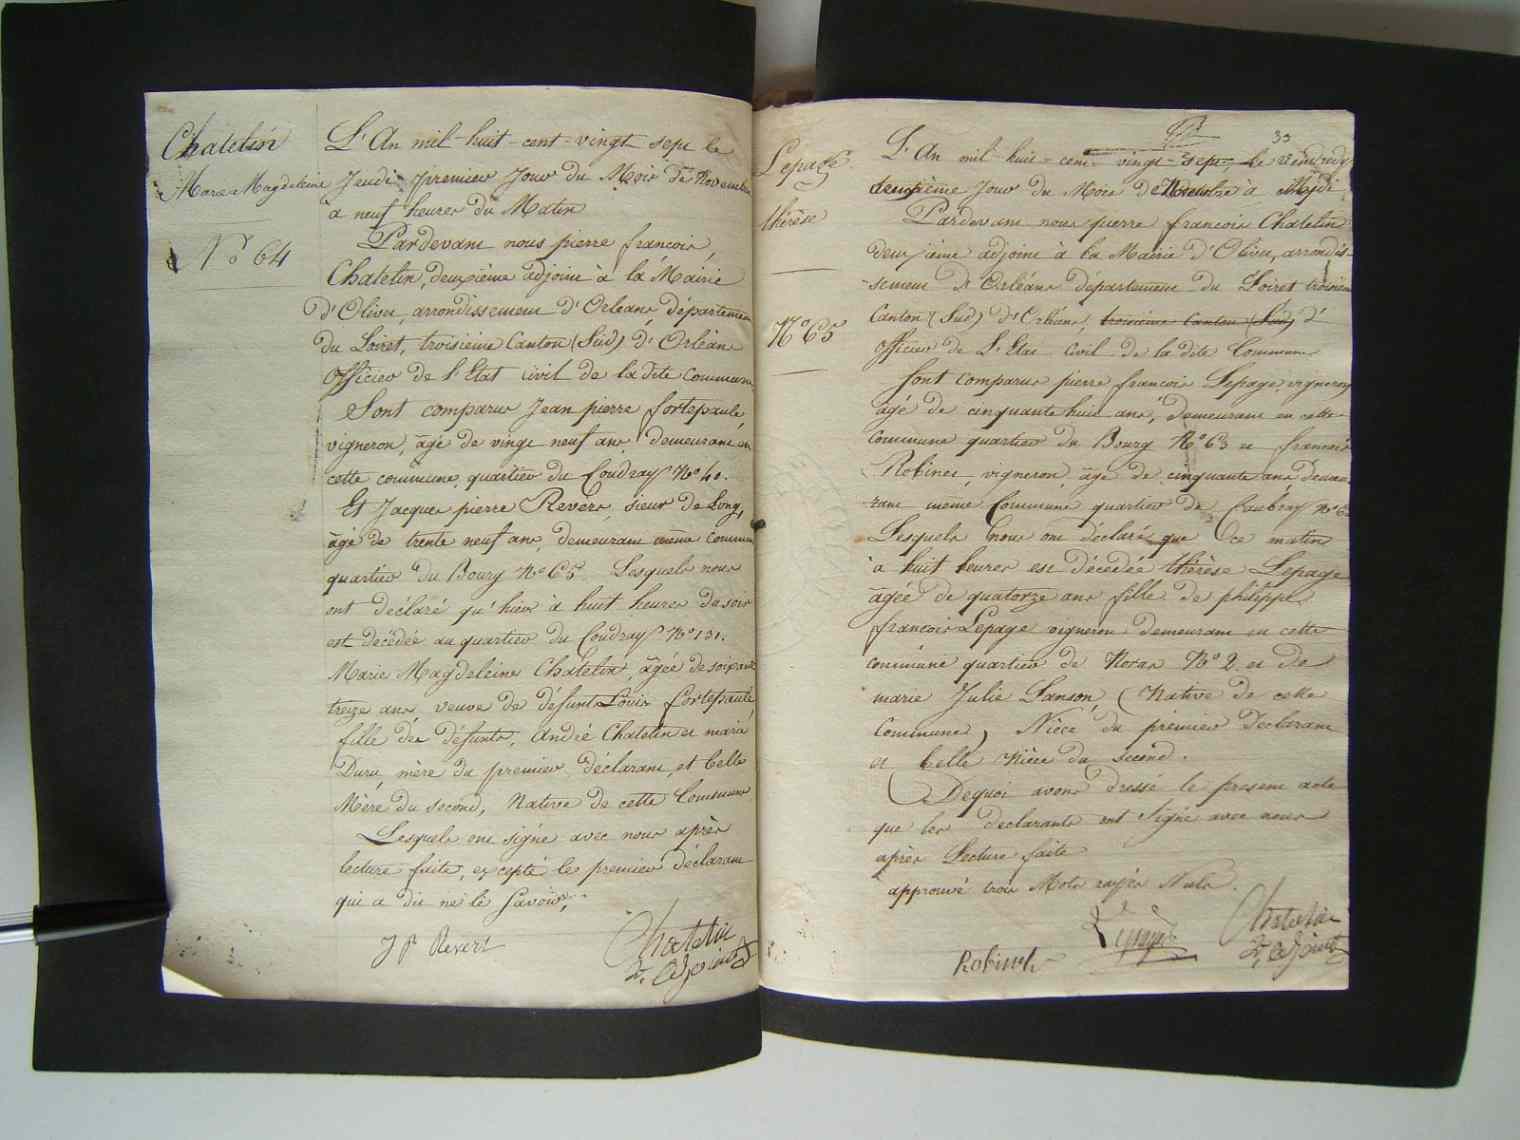 Chatelin
Marie Magdeleine
N° 64
L'An mil-huit-cent-vingt sept le
Jeudi premier Jour du Mois de Novembre
à neuf heures du Matin
Pardevant nous pierre françois
Chatelin, deuxième adjoint à la Mairie
d'Olivet, arrondissement d'Orléans département
du Loiret, troisième Canton (Sud) d'Orléans
officier de l'Etat civil de la dite commune
Sont comparus Jean pierre fortepaule,
vigneron, âgé de vingt neuf ans, demeurant en
cette commune, quartier du Coudray N° 40.
Et Jacques pierre Revers, sieur de Long,
âgé de trente neuf ans, demeurant même commune
quartier du Bourg N° 65. Lesquels nous
ont déclaré qu'hier à huit heures du soir
est décédée au quartier du Coudray N° 131.
Marie Magdeleine Chatelin, âgée de soixante
treize ans, veuve de défunt Louis fortepaule
fille des défunts, André Chatelin et marie
Duru, mère du premier déclarant, et belle
Mère du second, Native de cette Commune
Lesquels ont signé avec nous après
lecture faite, excepté le premier déclarant
qui a dit ne le Savoir,
J P Revers
Chatelin
2e. adjoint
39
Lepage
thérèse
N° 65
L'An mil-huit-cent vingt-sept, le vendredi
deuxième Jour du Mois de Novembre à Midi
Pardevant nous pierre françois Chatelin
deuxième adjoint à la Mairie d'Olivet, arrondis-
-sement d'Orléans département du Loiret troisième
Canton (Sud) d'Orléans, troisième Canton (Sud) d'
officier de L'Etat Civil de la dite Commune
sont comparus pierre françois Lepage, vigneron
âgé de cinquante huit ans, demeurant en cette
commune quartier du Bourg N° 63 et françois
Robinet, vigneron, âgé de cinquante ans demeu-
rant même Commune quartier de N° 6
Lesquels nous ont déclaré que ce matin
à huit heures est décédée thérèse Lepage
âgée de quatorze ans fille de philippe
françois Lepage vigneron demeurant en cette
commune quartier de N° 2 et de
marie Julie Sanson, (Native de cette
Commune) Nièce du premier déclarant
et belle Nièce du second.
De quoi avons dressé le présent acte
que les déclarants ont Signé avec nous
après Lecture faite
approuvé trois Mots rayés Nuls.
Robinet
Lepage
Chatelin
2e. adjoint